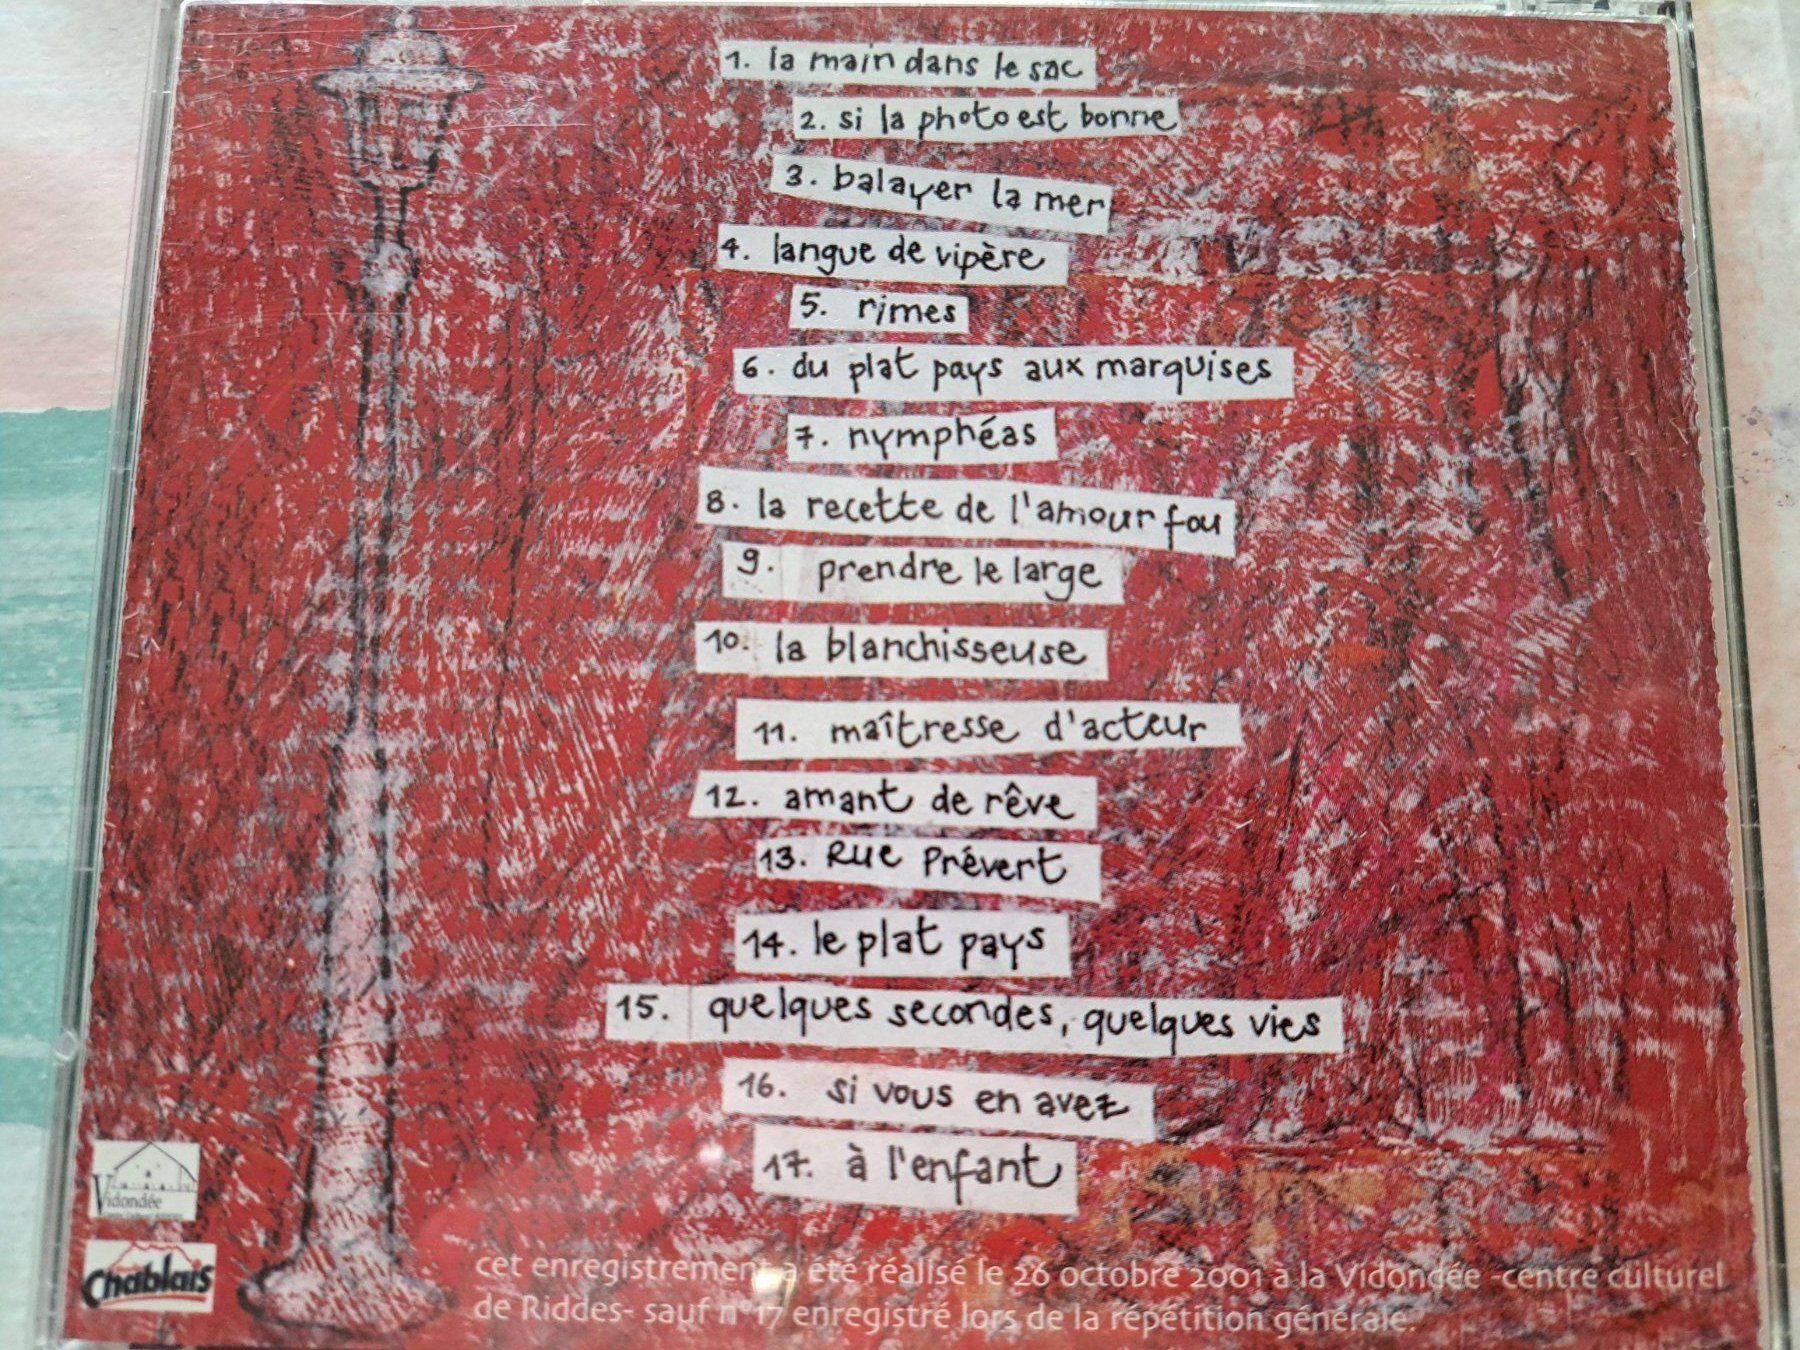 1. la main dans le sac
2. si la photo est bonne
3. balayer la mer
4. langue de vipère
5. rimes
6. du plat pays aux marquises
7. nymphéas
8. la recette de l'amour fou
9. prendre le large
10. la blanchisseuse
11. maîtresse d'acteur
12. amant de rêve
13. Rue Prévert
14. le plat pays
15. quelques secondes, quelques vies
16. si vous en avez
17. à l'enfant
Vidondée
Chablais
cet enregistrement a été réalisé le 26 octobre 2001 à la Vidondée -centre culturel
de Riddes- sauf n°17 enregistré lors de la répétition générale.